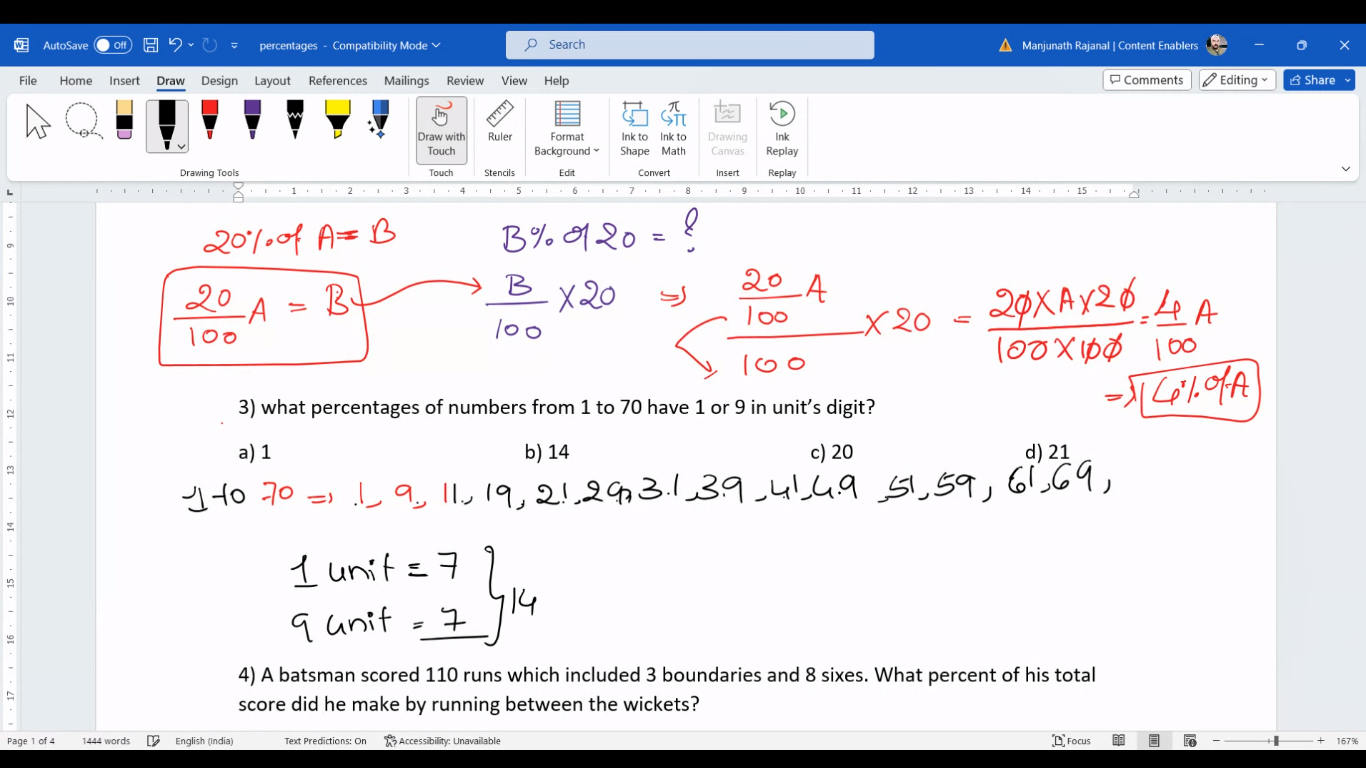 AutoSave Off percentages - Compatibility Mode Search Manjunath Rajanal | Content Enablers
File Home Insert Draw Design Layout References Mailings Review View Help Comments Editing Share
Draw with Touch Ruler Format Background Ink to Shape Ink to Math Drawing Canvas Ink Replay
Drawing Tools Touch Stencils Edit Convert Insert Replay
1 2 3 4 5 6 7 8 9 10 11 12 13 14 15
20% of A = B B% of 20 = ?
20/100 A = B B/100 × 20 ⇒ 20/100 A / 100 × 20 = 20 × A × 20 / 100 × 100 = 4/100 A
⇒ 4% of A
3) what percentages of numbers from 1 to 70 have 1 or 9 in unit’s digit?
a) 1 b) 14 c) 20 d) 21
1 to 70 ⇒ 1, 9, 11, 19, 21, 29, 31, 39, 41, 49, 51, 59, 61, 69,
1 unit = 7
9 unit = 7 } 14
4) A batsman scored 110 runs which included 3 boundaries and 8 sixes. What percent of his total
score did he make by running between the wickets?
Page 1 of 4 1444 words English (India) Text Predictions: On Accessibility: Unavailable Focus 167%
9
10
11
12
13
14
15
16
17